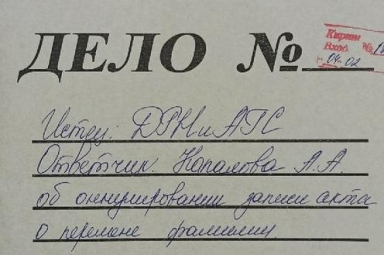 ДЕЛО №
Вход. №
04-02
Истец: ДРНиАГС
Ответчик Напалова А.А
об аннулировании записи акта
о перемене фамилии